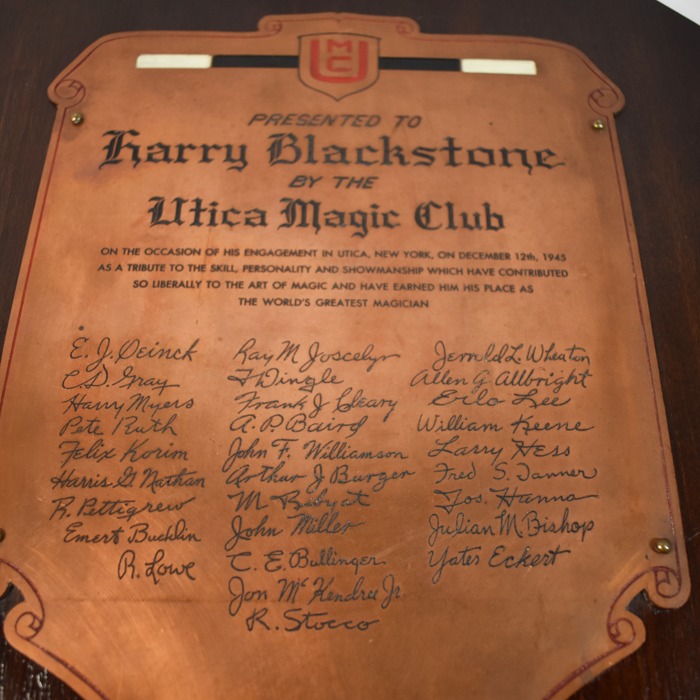 UMC
PRESENTED TO
Harry Blackstone
BY THE
Utica Magic Club
ON THE OCCASION OF HIS ENGAGEMENT IN UTICA, NEW YORK, ON DECEMBER 12th, 1945
AS A TRIBUTE TO THE SKILL, PERSONALITY AND SHOWMANSHIP WHICH HAVE CONTRIBUTED
SO LIBERALLY TO THE ART OF MAGIC AND HAVE EARNED HIM HIS PLACE AS
THE WORLD'S GREATEST MAGICIAN
E. J. Deinck
C.D. Gray
Harry Myers
Pete Ruth
Felix Korim
Harris G. Nathan
R. Pettigrew
Emert Bucklin
R. Lowe
Ray M Joscelyn
Dingle
Frank J Cleary
A. P. Baird
John F. Williamson
Arthur J Burger
M
John Miller
C. E. Bullinger
Jon McKendree Jr.
R. Stocco
Jerrold L. Wheaton
Allen G. Allbright
Lee
William Keene
Larry Hess
Fred S. Tanner
Jos. Hanna
Julian M. Bishop
Yates Eckert